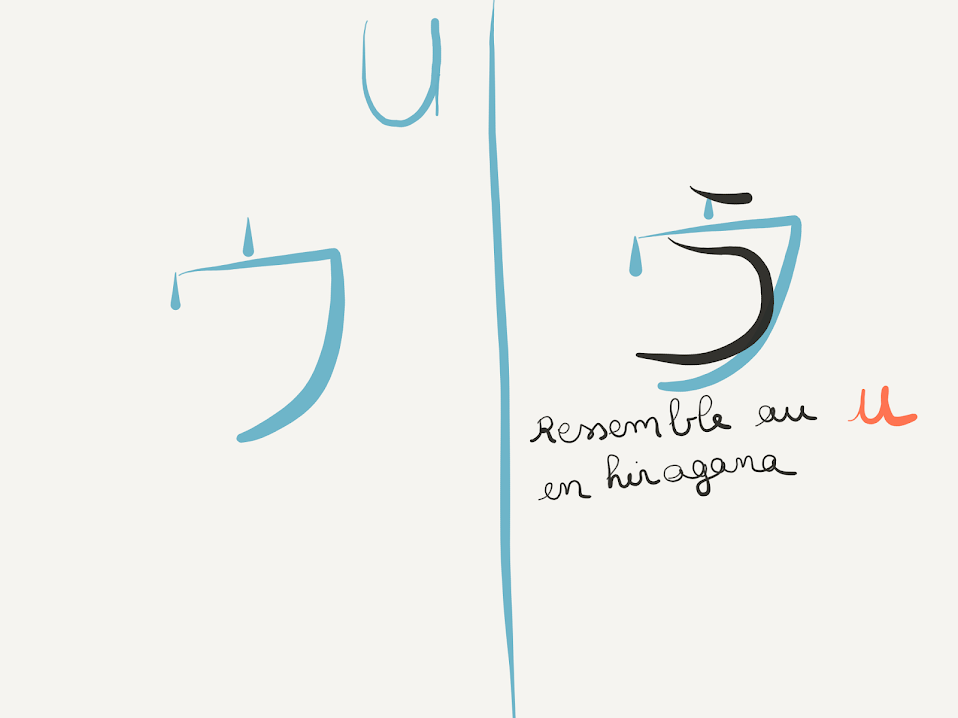 u
ウ
ウ
う
Ressemble au u
en hiragana